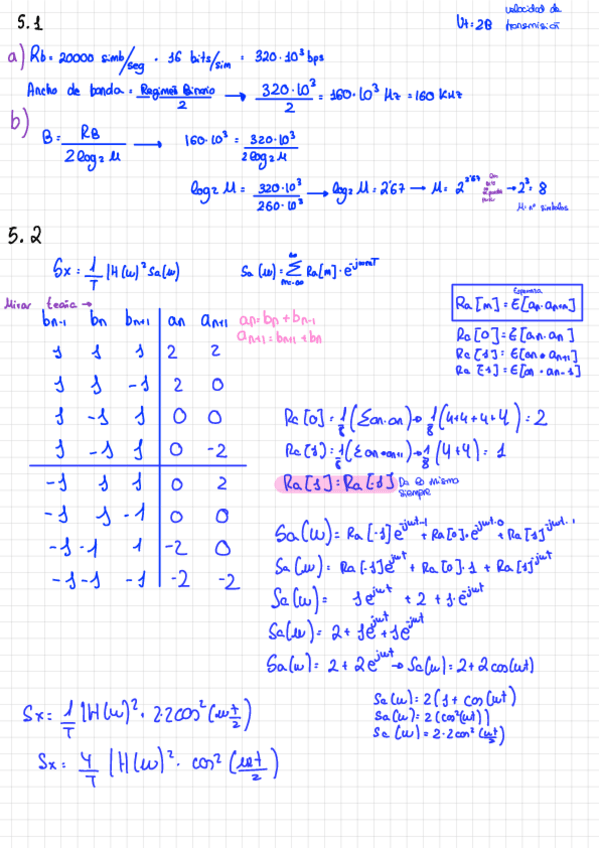 5.1
Vt=2B velocidad de transmisión
a) Rb= 20000 simb/seg · 16 bits/sim = 320·10³ bps
Ancho de banda = Regimen Binario/2 → 320·10³/2 = 160·10³ Hz = 160 KHz
b) B = RB/2log₂M → 160·10³ = 320·10³/2log₂M
log₂M = 320·10³/260·10³ → log₂M = 2'67 → M = 2^2'67 → 2³ = 8
M = nº simbolos
5.2
Sx = 1/T |H(w)|² Sa(w)
Sa(w) = ∑ Ra[m]·e^-jwmT
Mirar teoria →
Esperanza
Ra[m] = E[an·an+m]
bn-1 bn bn+1 an an+1
an = bn + bn-1
an+1 = bn+1 + bn
Ra[0] = E[an·an]
Ra[1] = E[an·an+1]
Ra[-1] = E[an·an-1]
1 1 1 2 2
1 1 -1 2 0
1 -1 1 0 0
1 -1 1 0 -2
-1 1 1 0 2
-1 1 -1 0 0
-1 -1 1 -2 0
-1 -1 -1 -2 -2
Ra[0] = 1/8 (∑an·an) → 1/8 (4+4+4+4) = 2
Ra[1] = 1/8 (∑an·an+1) → 1/8 (4+4) = 1
Ra[1] = Ra[-1] Da lo mismo siempre
Sa(w) = Ra[-1]e^-jwt·-1 + Ra[0]·e^-jwt·0 + Ra[1]^-jwt·1
Sa(w) = Ra[-1]e^jwt + Ra[0]·1 + Ra[1]^-jwt
Sa(w) = 1e^jwt + 2 + 1·e^-jwt
Sa(w) = 2 + 1e^jwt + 1e^-jwt
Sa(w) = 2 + 2e^jwt → Sa(w) = 2 + 2cos(wt)
Sa(w) = 2(1 + cos(wt)
Sa(w) = 2(cos²(wt))
Sa(w) = 2·2cos²(wt/2)
Sx = 1/T |H(w)|² · 2·2cos²(wt/2)
Sx = 4/T |H(w)|² · cos²(wt/2)